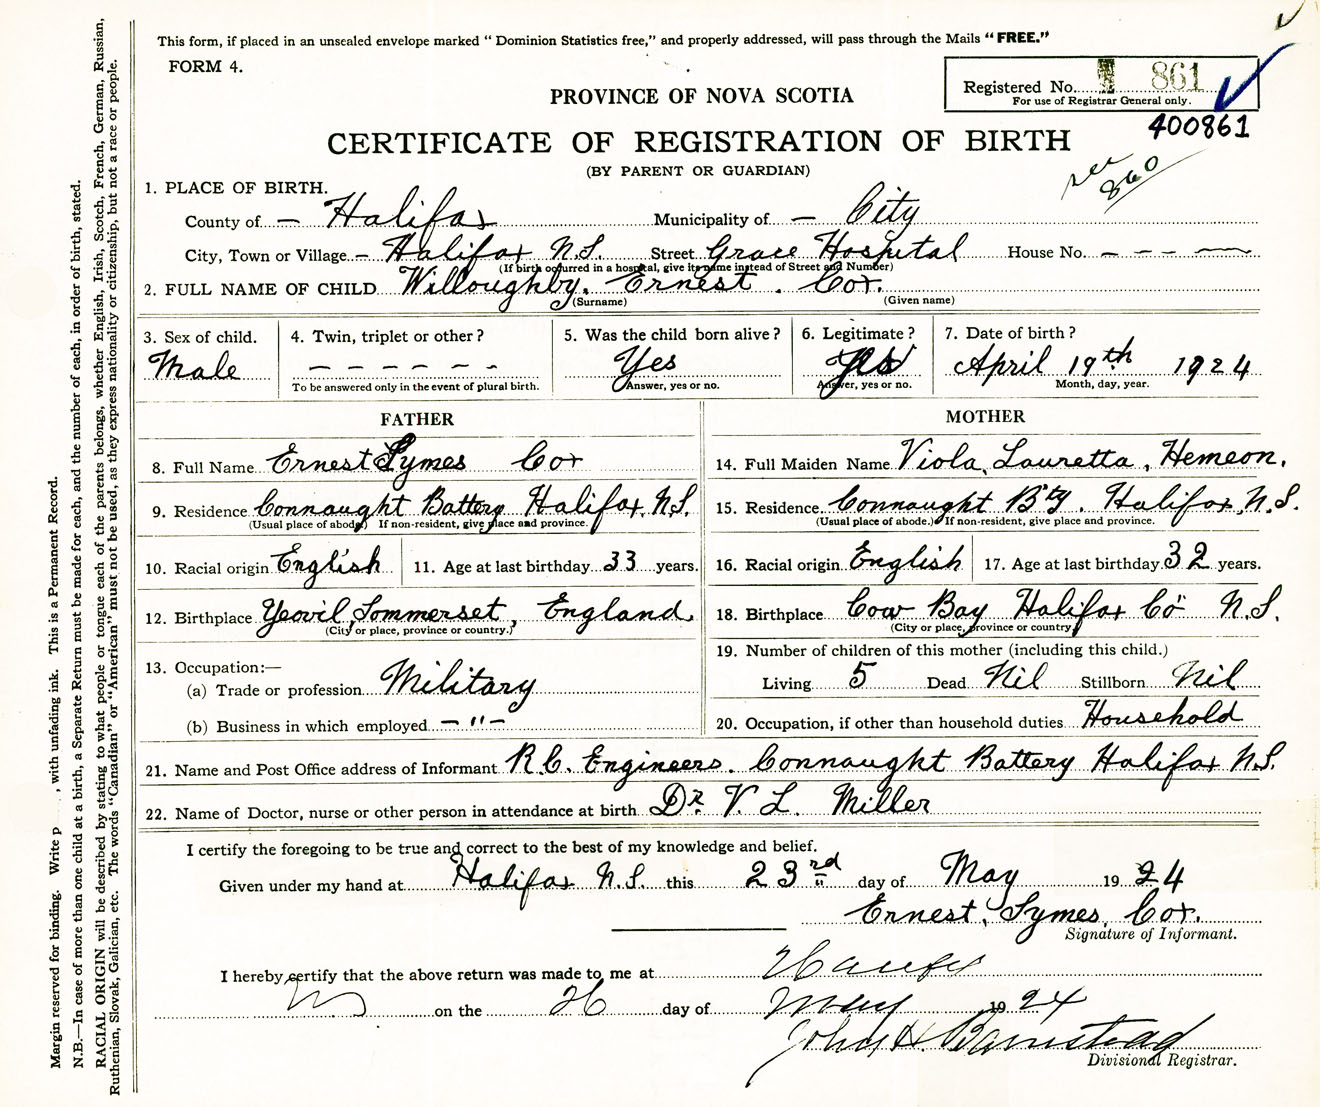 This form, if placed in an unsealed envelope marked "Dominion Statistics free," and properly addressed, will pass through the Mails "FREE."
FORM 4.
Registered No. 861
For use of Registrar General only.
400861
see 860
PROVINCE OF NOVA SCOTIA
CERTIFICATE OF REGISTRATION OF BIRTH
(BY PARENT OR GUARDIAN)
1. PLACE OF BIRTH.
County of – Halifax Municipality of – City
City, Town or Village – Halifax N.S. Street Grace Hospital House No. – – –
(If birth occurred in a hospital, give its name instead of Street and Number)
2. FULL NAME OF CHILD Willoughby, Ernest. Cox.
(Surname) (Given name)
3. Sex of child. 4. Twin, triplet or other? 5. Was the child born alive? 6. Legitimate? 7. Date of birth?
Male – – – – – – Yes Yes April 19th 1924
To be answered only in the event of plural birth. Answer, yes or no. Answer, yes or no. Month, day, year.
FATHER
8. Full Name Ernest Symes Cox
9. Residence Connaught Battery Halifax, N.S.
(Usual place of abode) If non-resident, give place and province.
10. Racial origin English 11. Age at last birthday 33 years.
12. Birthplace Yeovil, Sommerset, England.
(City or place, province or country.)
13. Occupation:—
(a) Trade or profession Military
(b) Business in which employed – " –
MOTHER
14. Full Maiden Name Viola, Lauretta, Hemeon.
15. Residence Connaught B'ty. Halifax, N.S.
(Usual place of abode.) If non-resident, give place and province.
16. Racial origin English 17. Age at last birthday 32 years.
18. Birthplace Cow Bay Halifax Co N.S.
(City or place, province or country)
19. Number of children of this mother (including this child.)
Living 5 Dead Nil Stillborn Nil
20. Occupation, if other than household duties Household
21. Name and Post Office address of Informant R.C. Engineers. Connaught Battery Halifax N.S.
22. Name of Doctor, nurse or other person in attendance at birth Dr. V. L. Miller
I certify the foregoing to be true and correct to the best of my knowledge and belief.
Given under my hand at Halifax N.S. this 23rd day of May 1924
Ernest, Symes, Cox.
Signature of Informant.
I hereby certify that the above return was made to me at Halifax
NS on the 26 day of May 1924
John H. Barnstead
Divisional Registrar.
Margin reserved for binding. Write p , with unfading ink. This is a Permanent Record.
N.B.—In case of more than one child at a birth, a Separate Return must be made for each, and the number of each, in order of birth, stated.
RACIAL ORIGIN will be described by stating to what people or tongue each of the parents belongs, whether English, Irish, Scotch, French, German, Russian,
Ruthenian, Slovak, Galician, etc. The words "Canadian" or "American" must not be used, as they express nationality or citizenship, but not a race or people.